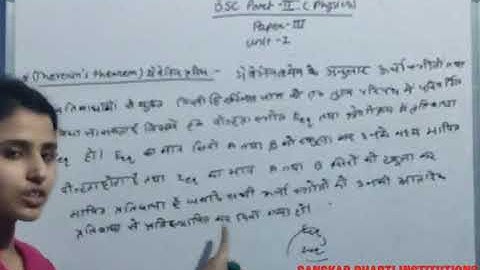 BSC Part-II (Physics)
Paper-III
Unit-I
(Thevenin's theorem) थेवेनिन प्रमेय :- थेवेनिन प्रमेय के अनुसार ऊर्जा स्त्रोतों तथा
प्रतिबाधाओं से युक्त किसी द्वि टर्मिनल जाल को एक तुल्य परिपथ में
किया जा सकता है जिसमें एक वोल्टता स्त्रोत Eeq तथा श्रेणीक्रम में प्रतिबाधा
Zeq हो। Eeq का मान सिरों A तथा B को खुला कर उनके मध्य मापित
वोल्टता होता है तथा Zeq का मान A तथा B सिरों को खुला कर
मापित प्रतिबाधा है जबकि सभी ऊर्जा स्त्रोतों को उनकी आंतरिक
प्रतिबाधा से प्रतिस्थापित कर दिया गया हो।
Eeq
Zeq
SANSKAR BHARTI INSTITUTIONS